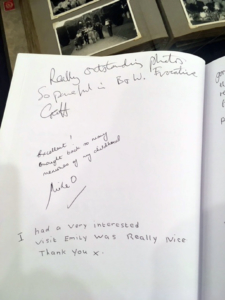 Really outstanding photos.
So powerful in B & W. Evocative
Excellent!
Brought back so many
memories of my childhood
Mike O
I had a very interested
visit Emily was Really Nice
Thank you x.